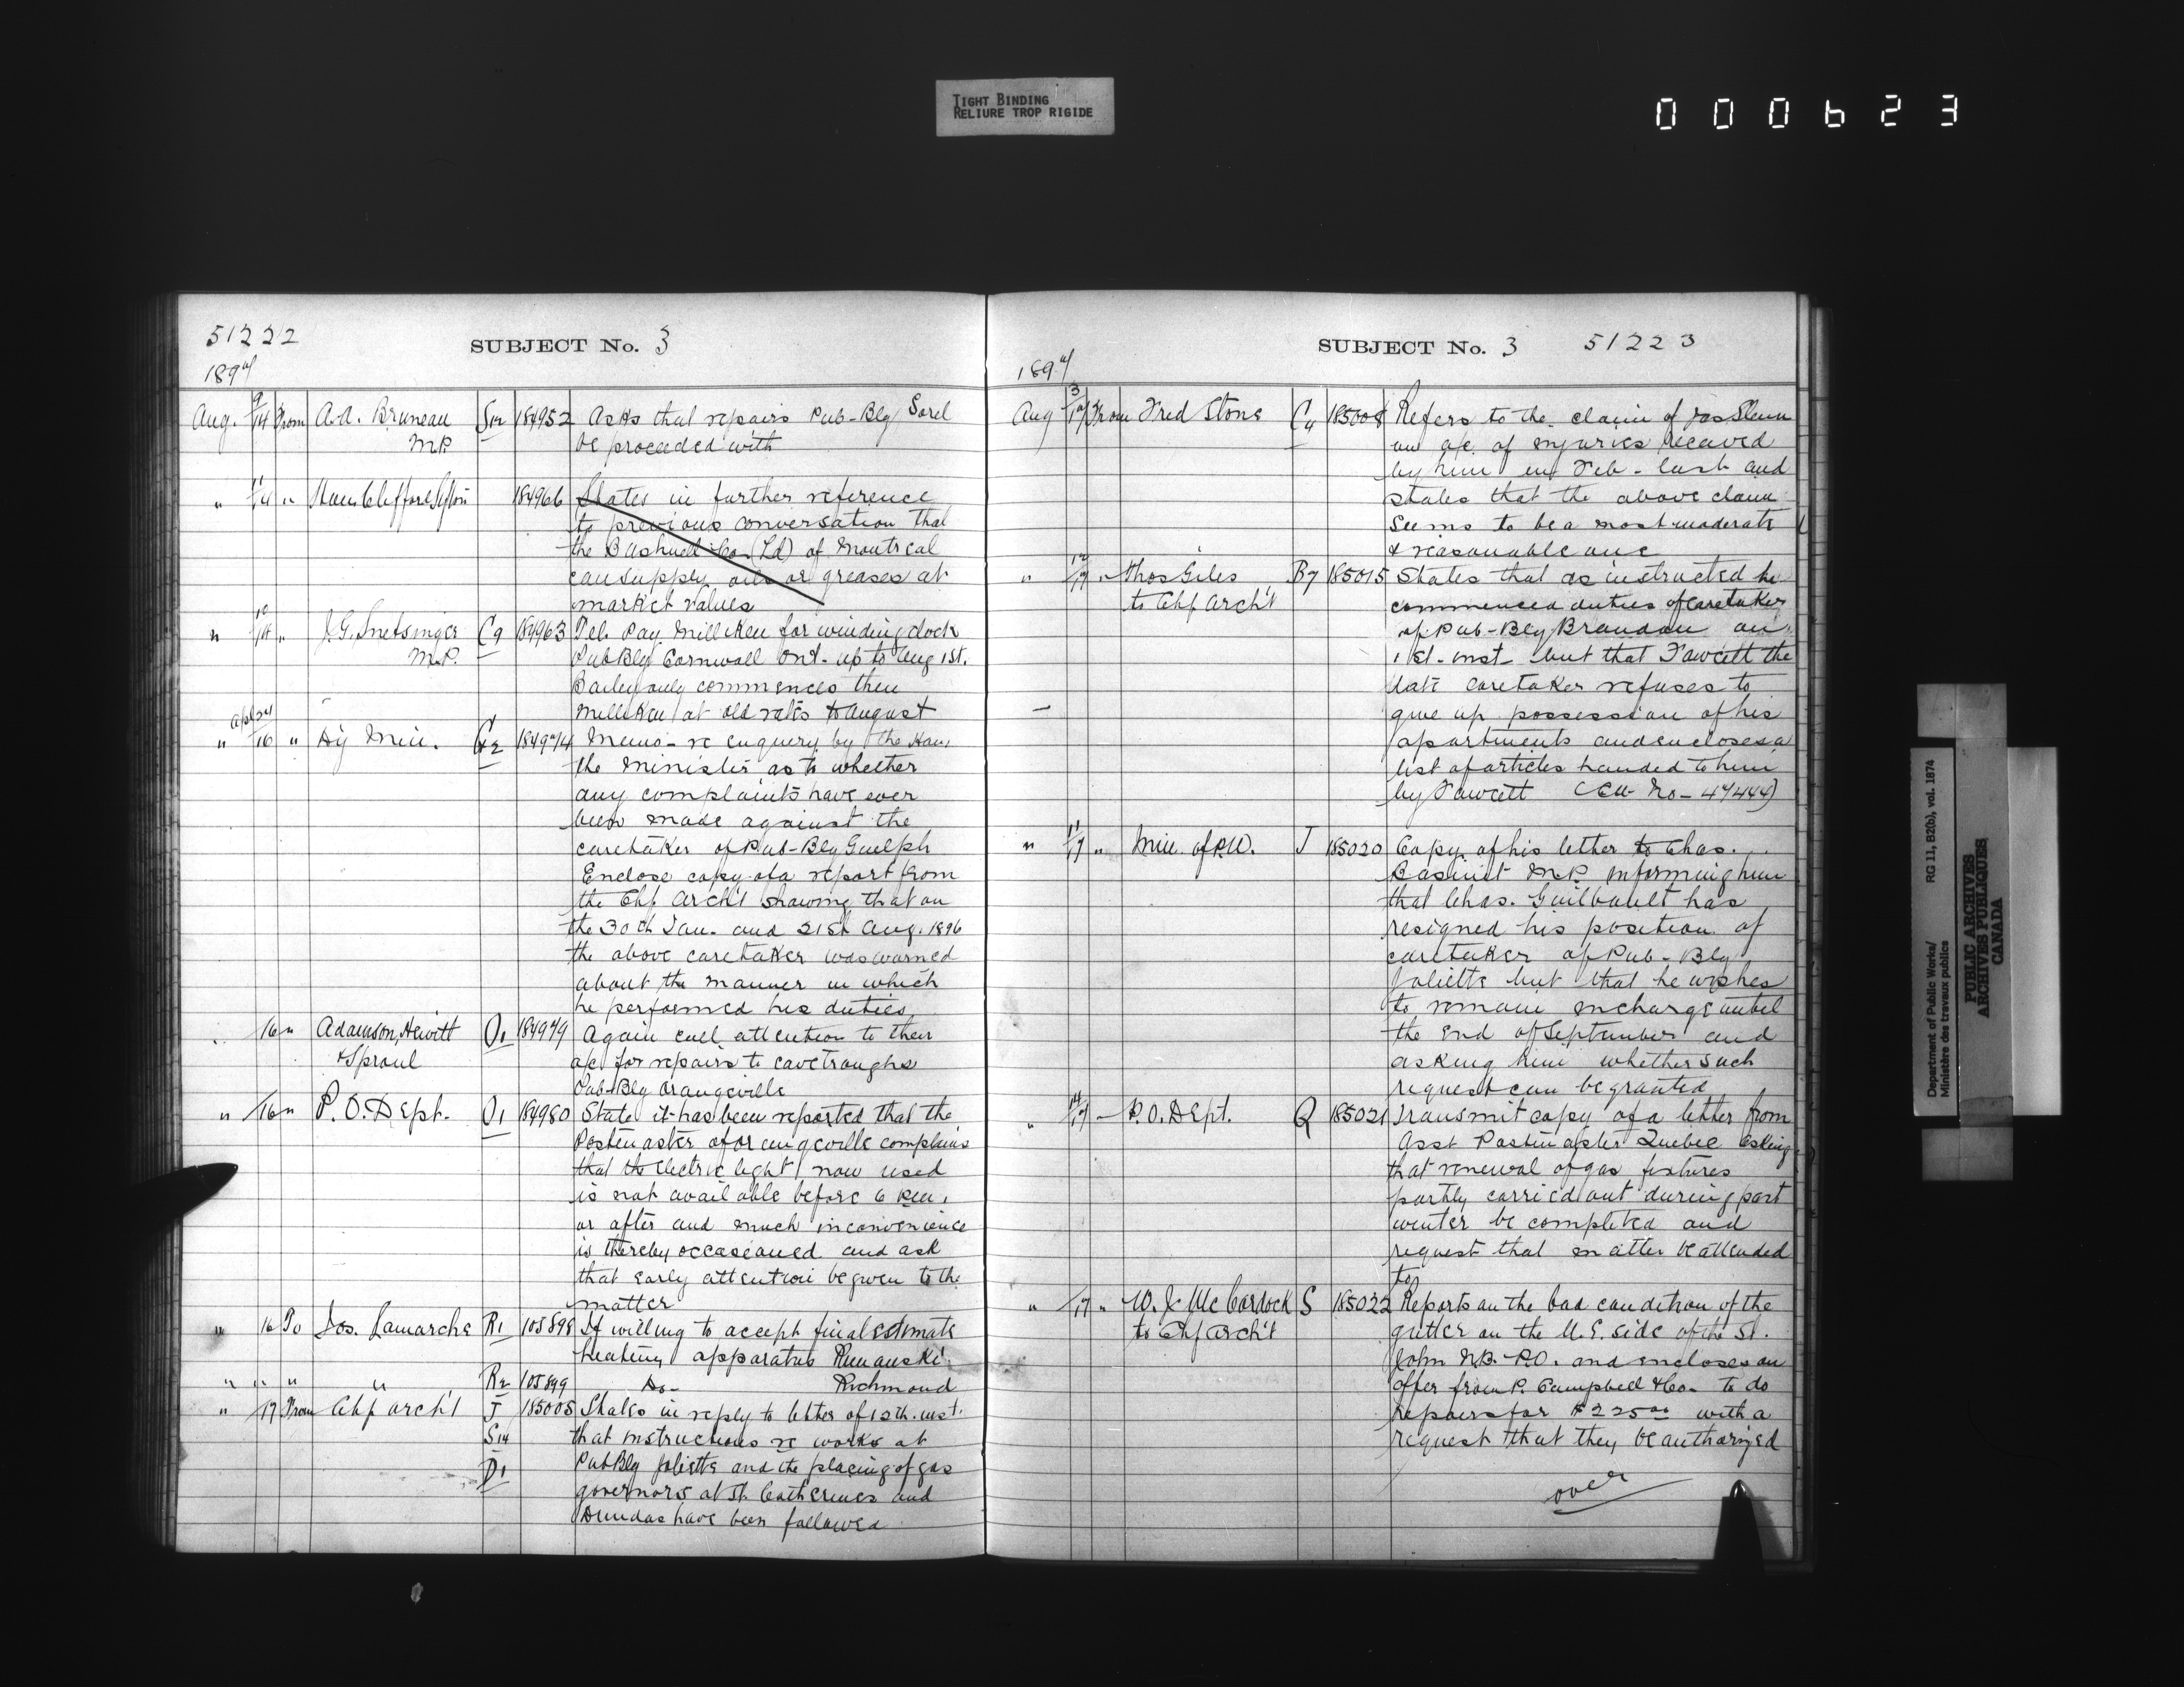 TIGHT BINDING
RELIURE TROP RIGIDE
000623
51222
SUBJECT No. 3
1897
Aug. 9/14 From A.A. Bruneau S12 184952 Asks that repairs Pub-Blg Sorel
M.P. be proceeded with
" 11/14 " Hon Clifford Sifton 184966 States in further reference
to previous conversation that
the Bushnell Co. (Ld) of Montreal
can supply oils or greases at
market values
" 10/14 " J.G. Snetsinger C9 184963 Tel. Pay Milliken for winding clock
M.P. Pub Blg Cornwall Ont. up to Aug 1st.
Bailey only commences then
Milliken at old rates to August
" 16 " Dy Min. G2 184974 Memo- re enquery by the Hon.
the Minister as to whether
any complaints have ever
been made against the
caretaker of Pub-Blg Guelph
Enclose copy of a report from
the Chf Archt showing that on
the 30th Jan. and 21st Aug. 1896
the above caretaker was warned
about the manner in which
he performed his duties
" 16 " Adamson, Hewitt O1 184979 Again call attention to their
& Sproul a/c for repairs to eavetroughs
Pub-Blg Orangeville
" 16 " P.O. Dept. O1 184980 State it has been reported that the
Postmaster of Orangeville complains
that the electric light now used
is not available before 6 p.m.
or after and much inconvenience
is thereby occasioned and ask
that early attention be given to the
matter
" 16 To Jos. Lamarche R1 105898 If willing to accept final estimate
heating apparatus Rimouski
" " " " R2 105899 Do- Richmond
" 17 From Chf Archt J 185005 States in reply to letter of 12th. inst.
S14 that instructions re works at
D1 Pub Blg Joliette and the placing of gas
governors at St. Catherines and
Dundas have been followed
SUBJECT No. 3 51223
1897
Aug 3/17 From Fred Stone C4 185008 Refers to the claim of Jas
on a/c. of injuries received
by him in Feb- last and
states that the above claim
seems to be a most moderate
& reasonable one
" 12/17 " Thos Giles B7 185015 States that as instructed he
to Chf Archt commenced duties of caretaker
of Pub-Blg Brandon on
1st. inst- but that Fawcett the
late caretaker refuses to
give up possession of his
apartments and encloses a
list of articles handed to him
by Fawcett (Ew No- 47444)
" 11/17 " Min. of P.W. J 185020 Copy of his letter to Chas.
Basinet M.P. informing him
that Chas. Guilbault has
resigned his position of
caretaker of Pub-Blg
Joliette but that he wishes
to remain in charge until
the end of September and
asking him whether such
request can be granted
" 14/17 " P.O. Dept. Q 185021 Transmit copy of a letter from
Asst Postmaster Quebec asking
that renewal of gas fixtures
partly carried out during past
winter be completed and
request that matter be attended
to
" 17 " W. J. McCordock S 185022 Reports on the bad condition of the
to Chf Archt gutter on the N.E. side of the St.
John N.B. P.O. and encloses an
offer from P. Campbell & Co- to do
repairs for $225.00 with a
request that they be authorized
over
Department of Public Works/ RG 11, B2(b), vol. 1874
Ministère des travaux publics
PUBLIC ARCHIVES
ARCHIVES PUBLIQUES
CANADA